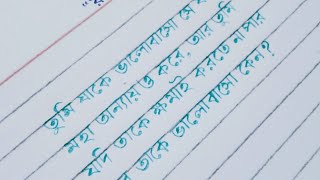 তুমি যাকে ভালোবাসো সে যদি
মহা অন্যায়ও করে, আর তুমি
যদি তাকে ক্ষমাই করতে না পার
তাকে ভালোবাসো কেন?